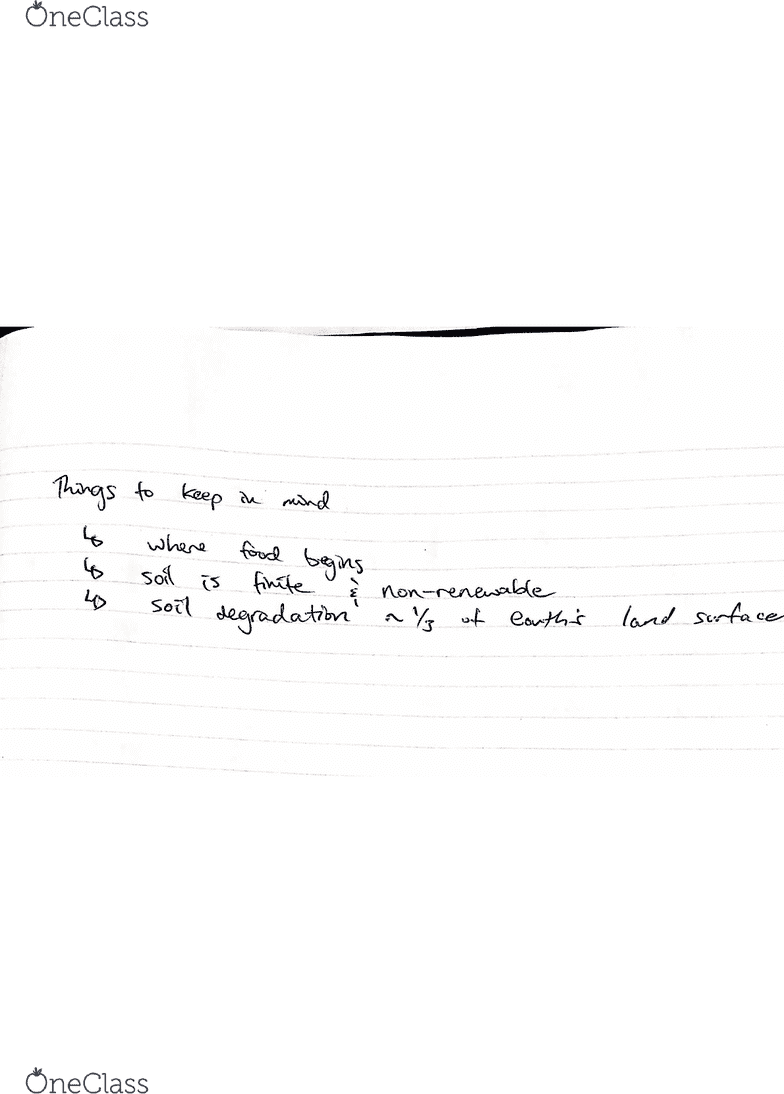 OneClass
Things to keep in mind
↳ where food begins
↳ soil is finite & non-renewable
↳ soil degradation ~ 1/3 of Earth's land surface
OneClass